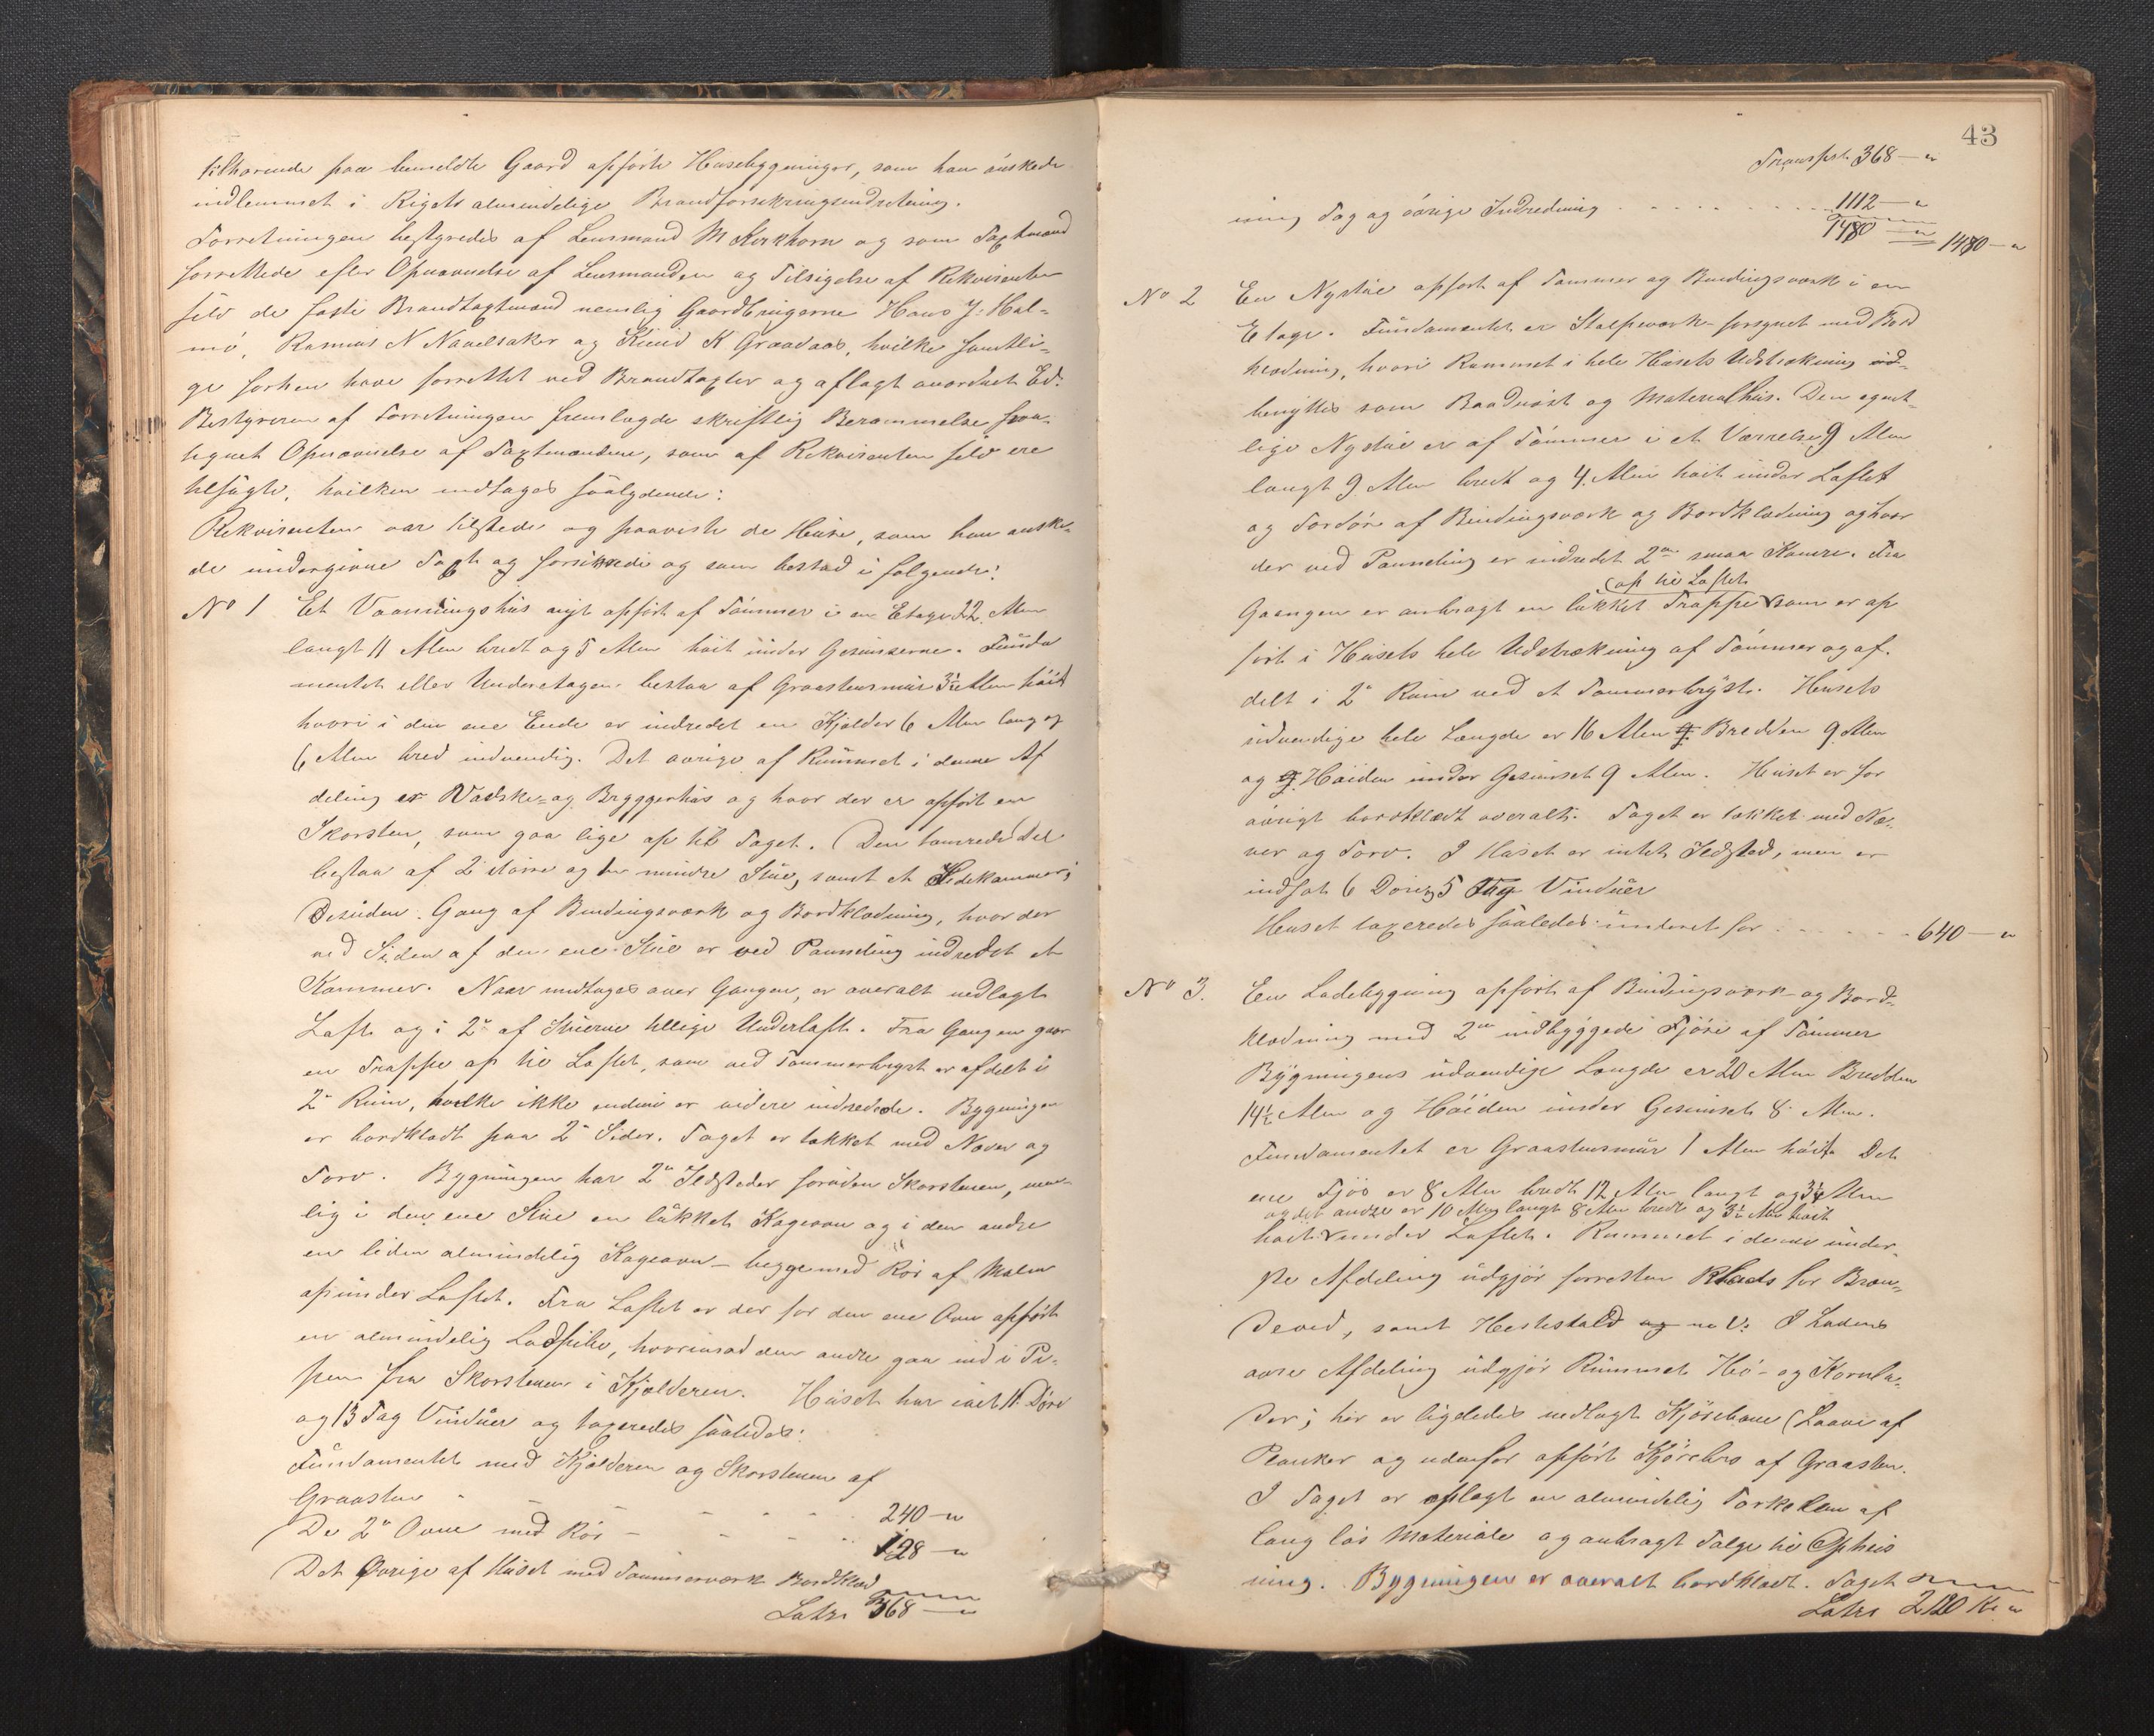 tilhørende paa bemeldte Gaard opførte Husebygninger, som han ønskede
indlemmet i Rigets almindelige Brandforsikringsindretning.
Forretningen bestyredes af Lensmand M Kirkhorn og som Taxtmænd
forrettede efter Opnævnelse af Lensmanden og Tilsigelse af Rekvirenten
selv de faste Brandtaxtmænd nemlig Gaardbrugerne Hans J. Hal-
mø, Rasmus N Navelsaker og Knud K Graadaas, hvilke samtli-
ge forhen have forrettet ved Brandtaxter og aflagt anordnet Ed.
Bestyreren af Forretningen fremlagde skriftlig Berammelse paa-
tegnet Opnævnelse af Taxtmændene, som af Rekvirenten selv ere
tilsagte, hvilken indtages saalydende:
Rekvirenten var tilstede og paaviste de Huse, som han ønske-
de undergivne Taxt og forsikrede og som bestod i følgende:
No 1 Et Vaaningshus nyt opført af Tømmer i en Etage 22 Alen
langt 11 Alen bredt og 5 Alen høit under Gesimserne. Funda
mentet eller Underetagen bestaa af Graastensmur 3½ Alen høit
hvori i den ene Ende er indredet en Kjelder 6 Alen lang og
6 Alen bred indvendig. Det øvrige af Rummet i denne Af
deling er Vadske- og Bryggerhus og hvor der er opført en
Skorsten, som gaa lige op til Taget. Den tømrede Del
bestaa af 2 større og en mindre Stue, samt et Sidekammer;
Desuden Gang af Bindingsværk og Bordklædning, hvor der
ved Siden af den ene Stue er ved Panneling indredet et
Kammer. Naar undtages over Gangen, er overalt nedlagt
Loft og i 2de af Stuerne tillige Underloft. Fra Gangen gaar
en Trappe op til Loftet, som ved Tømmerbryst er afdelt i
2de Rum, hvilke ikke endnu er videre indredede. Bygningen
er bordklædt paa 2de Sider. Taget er tækket med Næver og
Torv. Bygningen har 2de Ildsteder foruden Skorstenen, nem-
lig i den ene Stue en lukket Kageovn og i den andre
en liden almindelig Kageovn – begge med Rør af Malm
op under Loftet. Fra Loftet er der for den ene Ovn opført
en almindelig Lodpibe, hvorimod den andre gaa ind i Pi-
pen fra Skorstenen i Kjelderen. Huset har ialt 11 Døre
og 13 Fag Vinduer og taxeredes saaledes:
Fundamentet med Kjelderen og Skorstenen af
Graasten - - - - 240 – "
De 2de Ovne med Rør - - - - 128 – "
Det Øvrige af Huset med Tømmerværk Bordklæd
Latus 368 – "
43
Transpt. 368 – "
ning Tag og øvrige Indredning . . . . . . 1112 – "
1480 – " 1480 – "
No 2 En Nystue opført af Tømmer og Bindingsværk i en
Etage. Fundamentet er Stolpeværk forsynet med Bord
klædning, hvori Rummet i hele Husets Udstrækning ud-
benyttes som Baadnøst og Materialhus. Den egent-
lige Nystue er af Tømmer i et Værrelse 9 Alen
langt 9 Alen bredt og 4 Alen høit under Loftet
og Fordør af Bindingsværk og Bordklædning og hvor
der ved Panneling er indredet 2de smaa Kamre. Fra
op til Loftet
Gangen er anbragt en lukket Trappe som er op
ført i Husets hele Udstrækning af Tømmer og af-
delt i 2de Rum ved et Tømmerbryst. Husets
udvendige hele Længde er 16 Alen Bredden 9 Alen
og Høiden under Gesimset 9 Alen. Huset er for
øvrigt bordklædt overalt. Taget er tækket med Næ-
ver og Torv. I Huset er intet Ildsted, men er
indsat 6 Døre, 5 Fag Vinduer
Huset taxeredes saaledes under et for . . . . . . 640 – "
No 3. En Ladebygning opført af Bindingsværk og Bord-
klædning med 2de indbyggede Fjøse af Tømmer
Bygningens udvendige Længde er 20 Alen Bredden
14½ Alen og Høiden under Gesimset 8 Alen.
Fundamentet er Graastensmur 1 Alen høit. Det
ene Fjøs er 8 Alen bredt 12 Alen langt og 3¼ Alen
og det andre er 10 Alen langt 8 Alen bredt og 3½ Alen høit
høit under Loftet. Rummet i denne under-
ste Afdeling udgjør forresten Plads for Bræn-
deved, samt Hestestald og m V. I Ladens
øvre Afdeling udgjør Rummet Hø- og Kornla-
der; her er ligeledes nedlagt Kjørebane (Laave af
Planker og udenfor opført Kjørebro af Graasten.
I Taget er oplagt en almindelig Tørkelem af
lang løs Materiale og anbragt Talge til Opheis
ning. Bygningen er overalt bordklædt. Taget
Latus 2120 Kr "